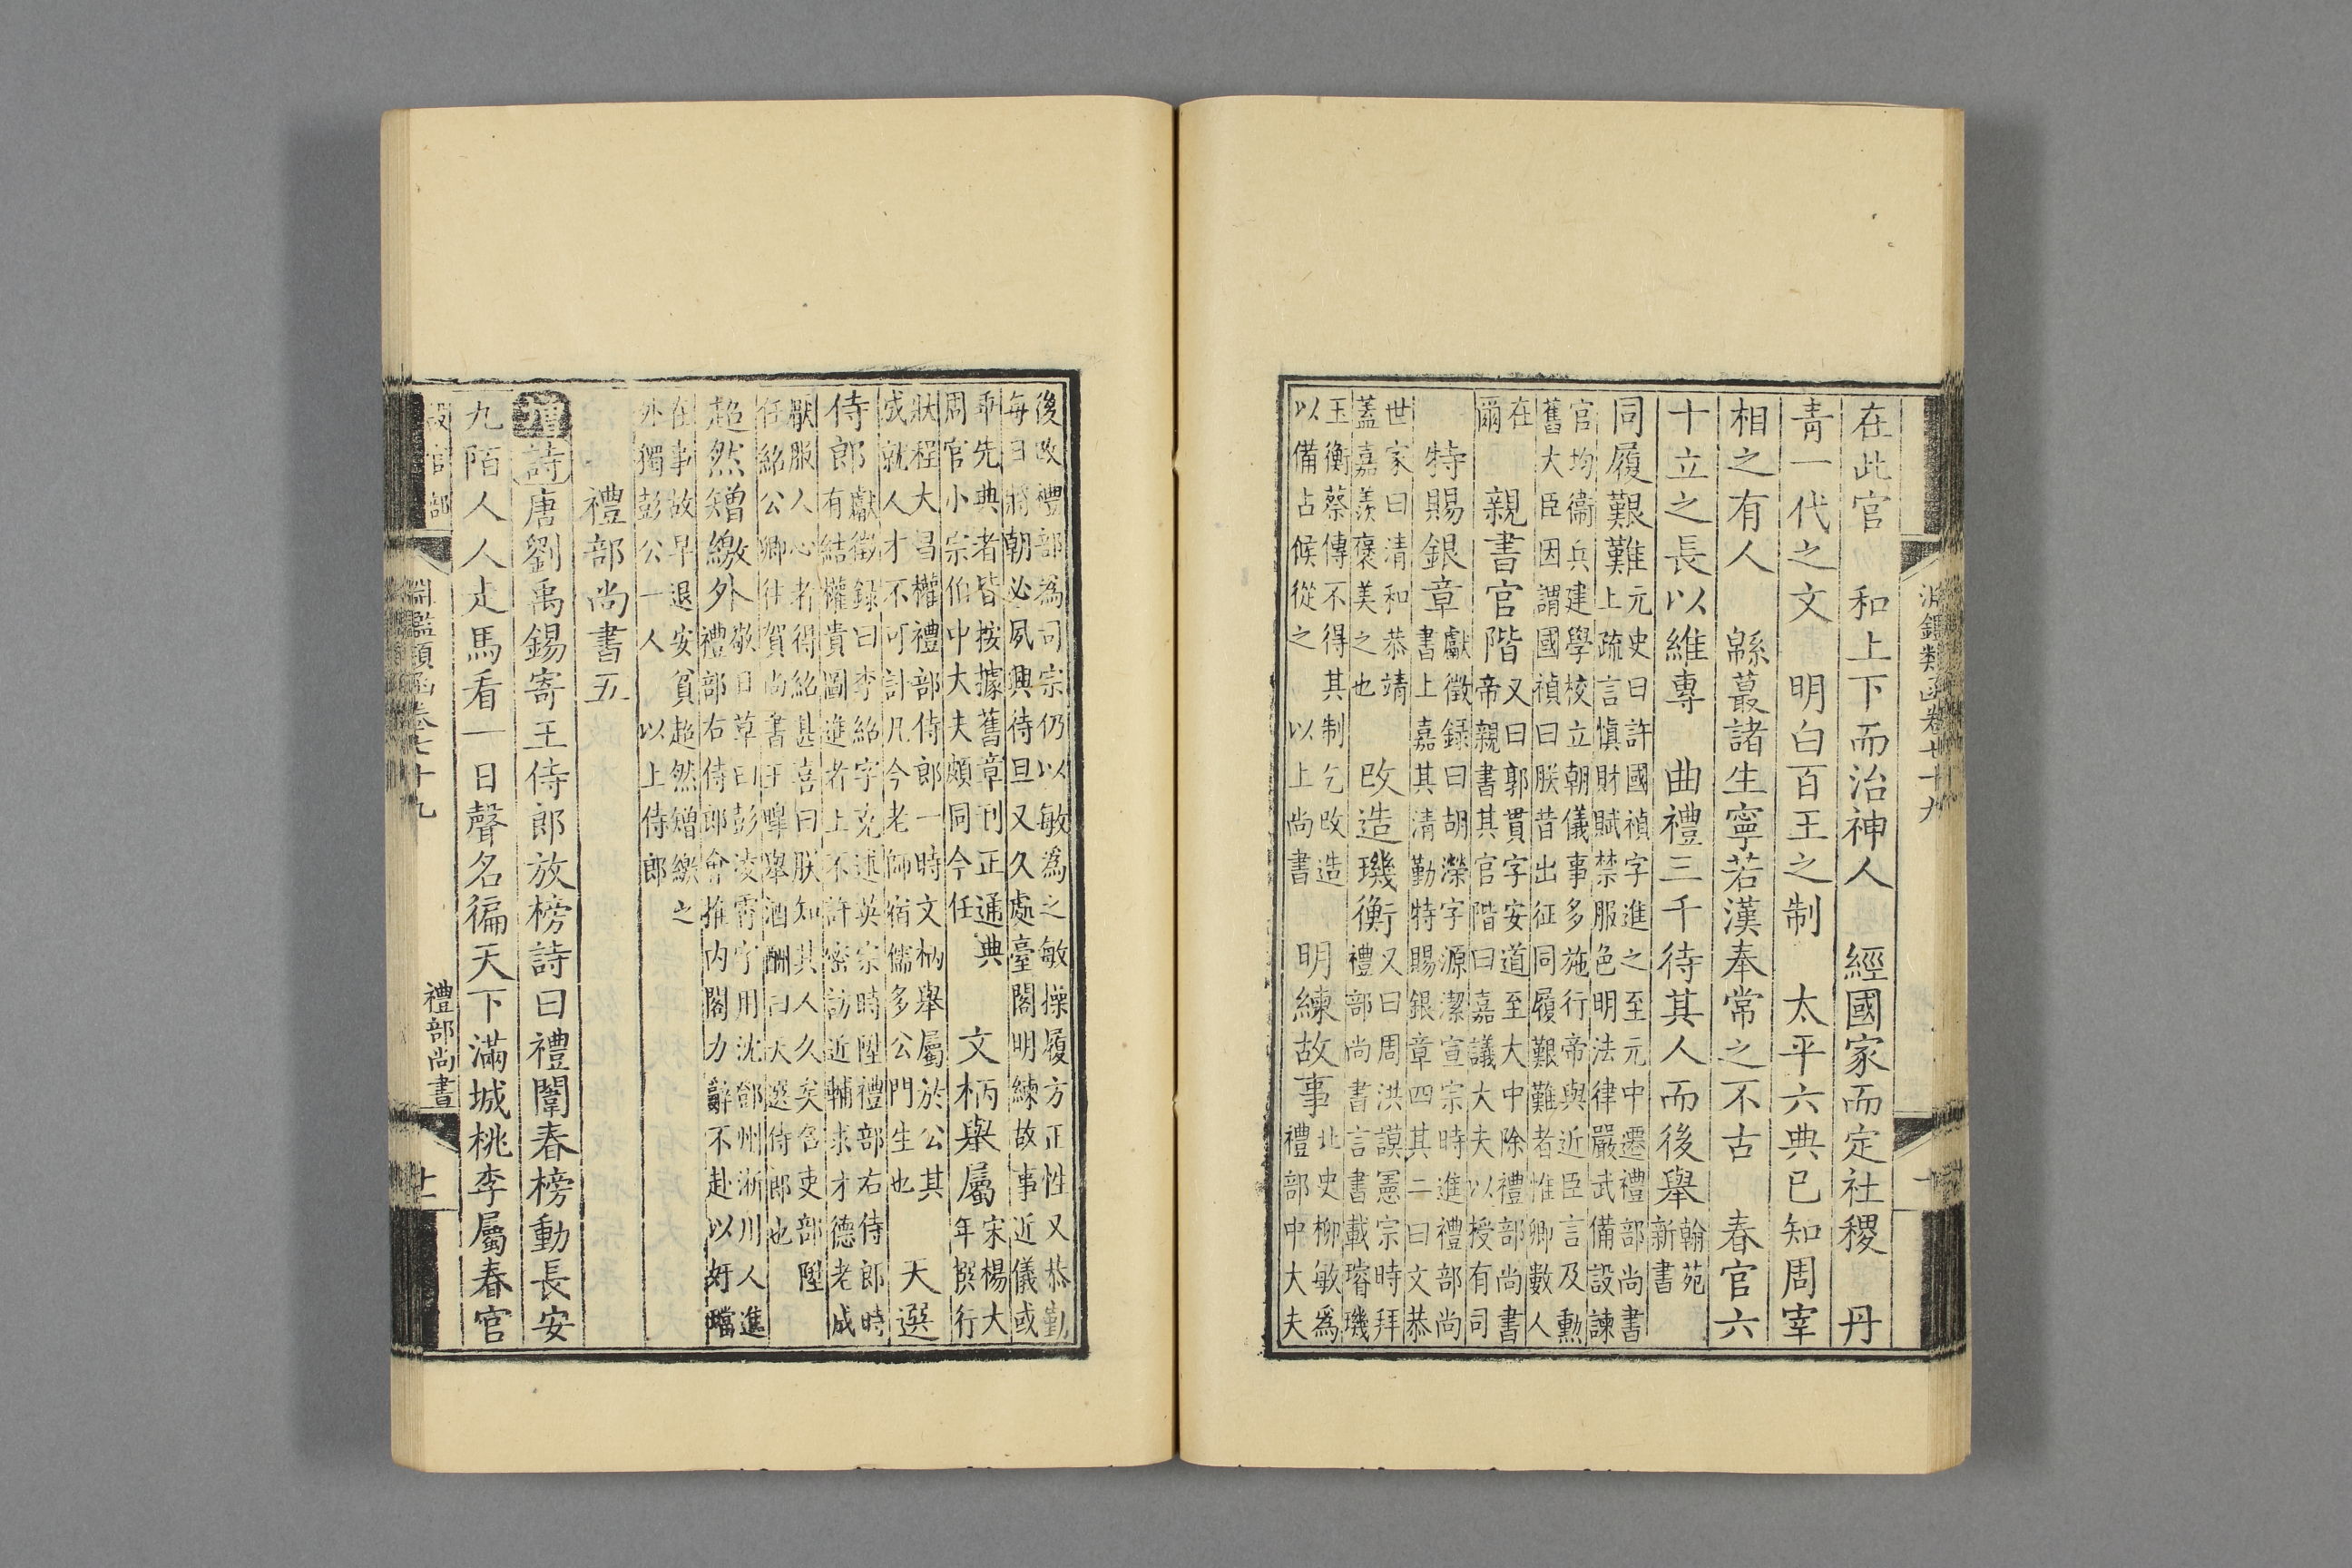 在此官　和上下而治神人　經國家而定社稷　丹
青一代之文　明白百王之制　太平六典已知周宰
相之有人　緜蕞諸生寧若漢奉常之不古　春官六
十立之長以維專　曲禮三千待其人而後舉翰苑
新書
同履艱難元史曰許國禎字進之至元中遷禮部尚書
上疏言慎財賦禁服色明法律嚴武備設諫
官均衞兵建學校立朝儀事多施行帝與近臣言及勳
舊大臣因謂國禎曰朕昔出征同履艱難者惟卿數人
在
爾
親書官階又曰郭貫字安道至大中除禮部尚書
帝親書其官階曰嘉議大夫以授有司
特賜銀章獻徵録曰胡濙字源潔宣宗時進禮部尚
書上嘉其清勤特賜銀章四其二曰文恭
世家曰清和恭靖
蓋嘉羨褒美之也
改造璣衡又曰周洪謨憲宗時拜
禮部尚書言書載璿璣
玉衡蔡傳不得其制乞改造
以備占候從之　以上尚書
明練故事北史柳敏為
禮部中大夫
後改禮部為司宗仍以敏為之敏操履方正性又恭勤
每日將朝必夙興待旦又久處臺閣明練故事近儀或
乖先典者皆按據舊章刊正通典
周官小宗伯中大夫頗同今任
文柄舉屬宋楊大
年撰行
狀程大昌權禮部侍郎一時文柄舉屬於公其
成就人才不可計凡今老師宿儒多公門生也
天選
侍郎獻徵録曰李紹字克述英宗時陞禮部右侍郎時
有結權貴圖進者上不許密訪近輔求才德老成
厭服人心者得紹甚喜曰朕知其人久矣召吏部陞
任紹公卿往賀尚書王𦤎舉酒酬曰天選侍郎也
超然矰繳外敬日草曰彭凌霄字用沈鄧州淅川人進
禮部右侍郎會推内閣力辭不赴以奸璫
在事故早退安貧超然矰繳之
外獨彭公一人　以上侍郎
禮部尚書五
增詩唐劉禹錫寄王侍郎放榜詩曰禮闈春榜動長安
九陌人人走馬看一日聲名徧天下滿城桃李屬春官
設官部　淵鑑類函卷七十九　禮部尚書　十一